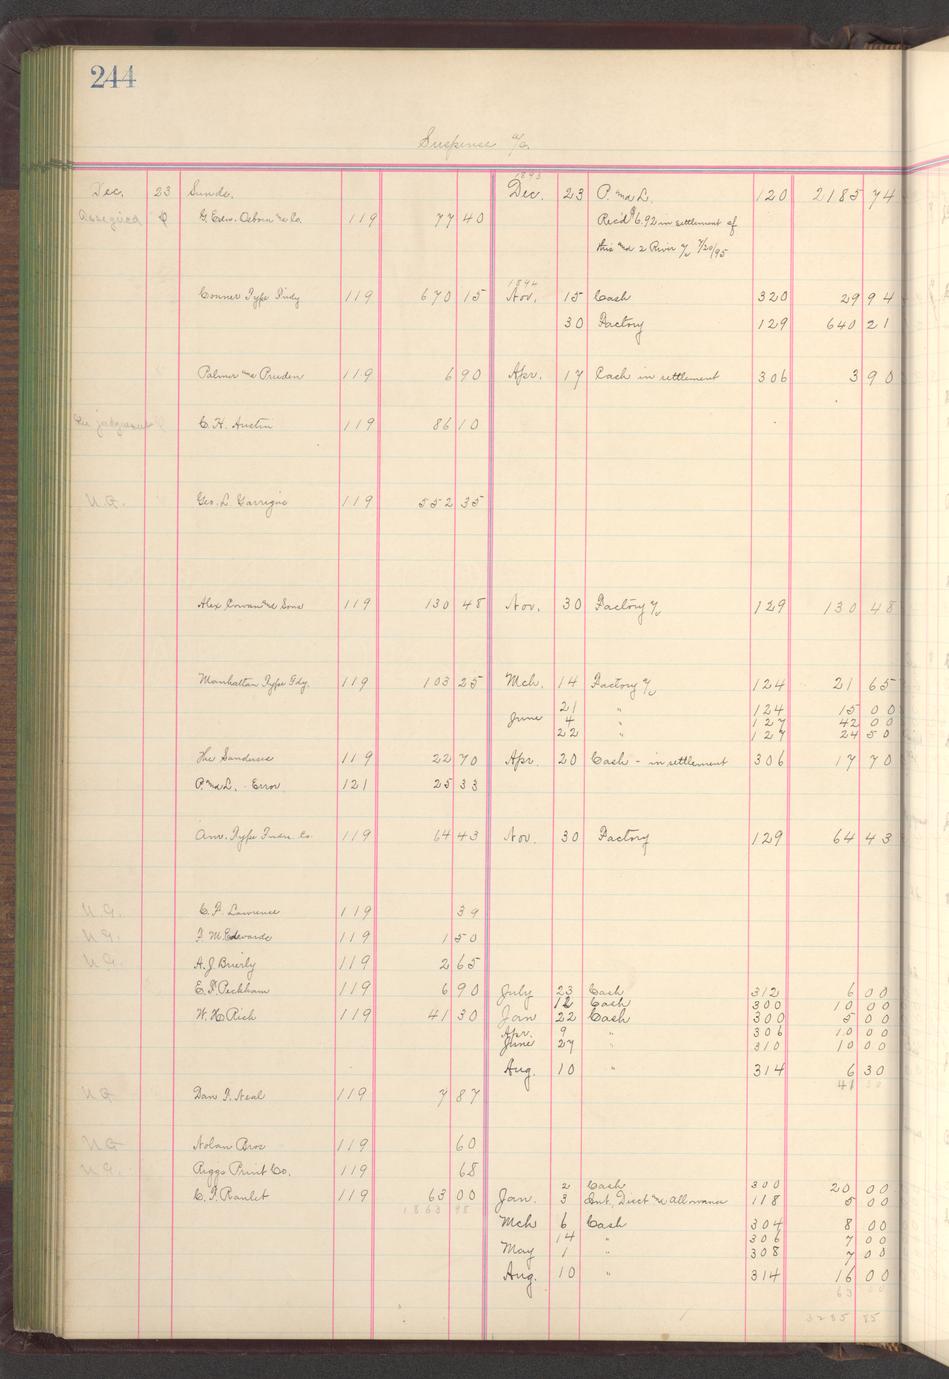 244
Suspense a/c.
1893
Dec. 23 Sunds. Dec. 23 P. and L. 120 2185 74
Assigned G. Edw. Osborn and Co. 119 77 40 Rec'd $6.92 in settlement of
this and 2 River a/c 7/20/95
1894
Conner Type Fndy 119 670 15 Nov. 15 Cash 320 29 94
30 Factory 129 640 21
Palmer and Pruden 119 6 90 Apr. 17 Cash in settlement 306 3 90
judgment C. H. Austin 119 86 10
N.G. Geo. L. Garrigue 119 552 35
Alex Cowan and Sons 119 130 48 Nov. 30 Factory a/c 129 130 48
Manhattan Type Fdy. 119 103 25 Mch. 14 Factory a/c 124 21 65
21 " 124 15 00
June 4 " 127 42 00
22 " 127 24 50
The Sanderses 119 22 70 Apr. 20 Cash - in settlement 306 17 70
P. and L. Error 121 25 33
Am. Type Fndrs Co. 119 64 43 Nov. 30 Factory 129 64 43
N.G. C. P. Lawrence 119 39
N.G. F. M. Edwards 119 1 50
N.G. A. J. Brierly 119 2 65
E. P. Peckham 119 6 90 July 23 Cash 312 6 00
12 Cash 300 10 00
W. H. Rich 119 41 30 Jan 22 Cash 300 5 00
Apr. 9 " 306 10 00
June 27 " 310 10 00
Aug. 10 " 314 6 30
41
N.G. Dan I. Neal 119 7 87
N.G. Nolan Bros 119 60
N.G. Riggs Print Co. 119 68
2 Cash 300 20 00
C. I. Ranlet 119 63 00 Jan. 3 Int., Disct and Allowance 118 5 00
1863 98
Mch 6 Cash 304 8 00
14 " 306 7 00
May 1 " 308 7 00
Aug. 10 " 314 16 00
63 00
3285 85